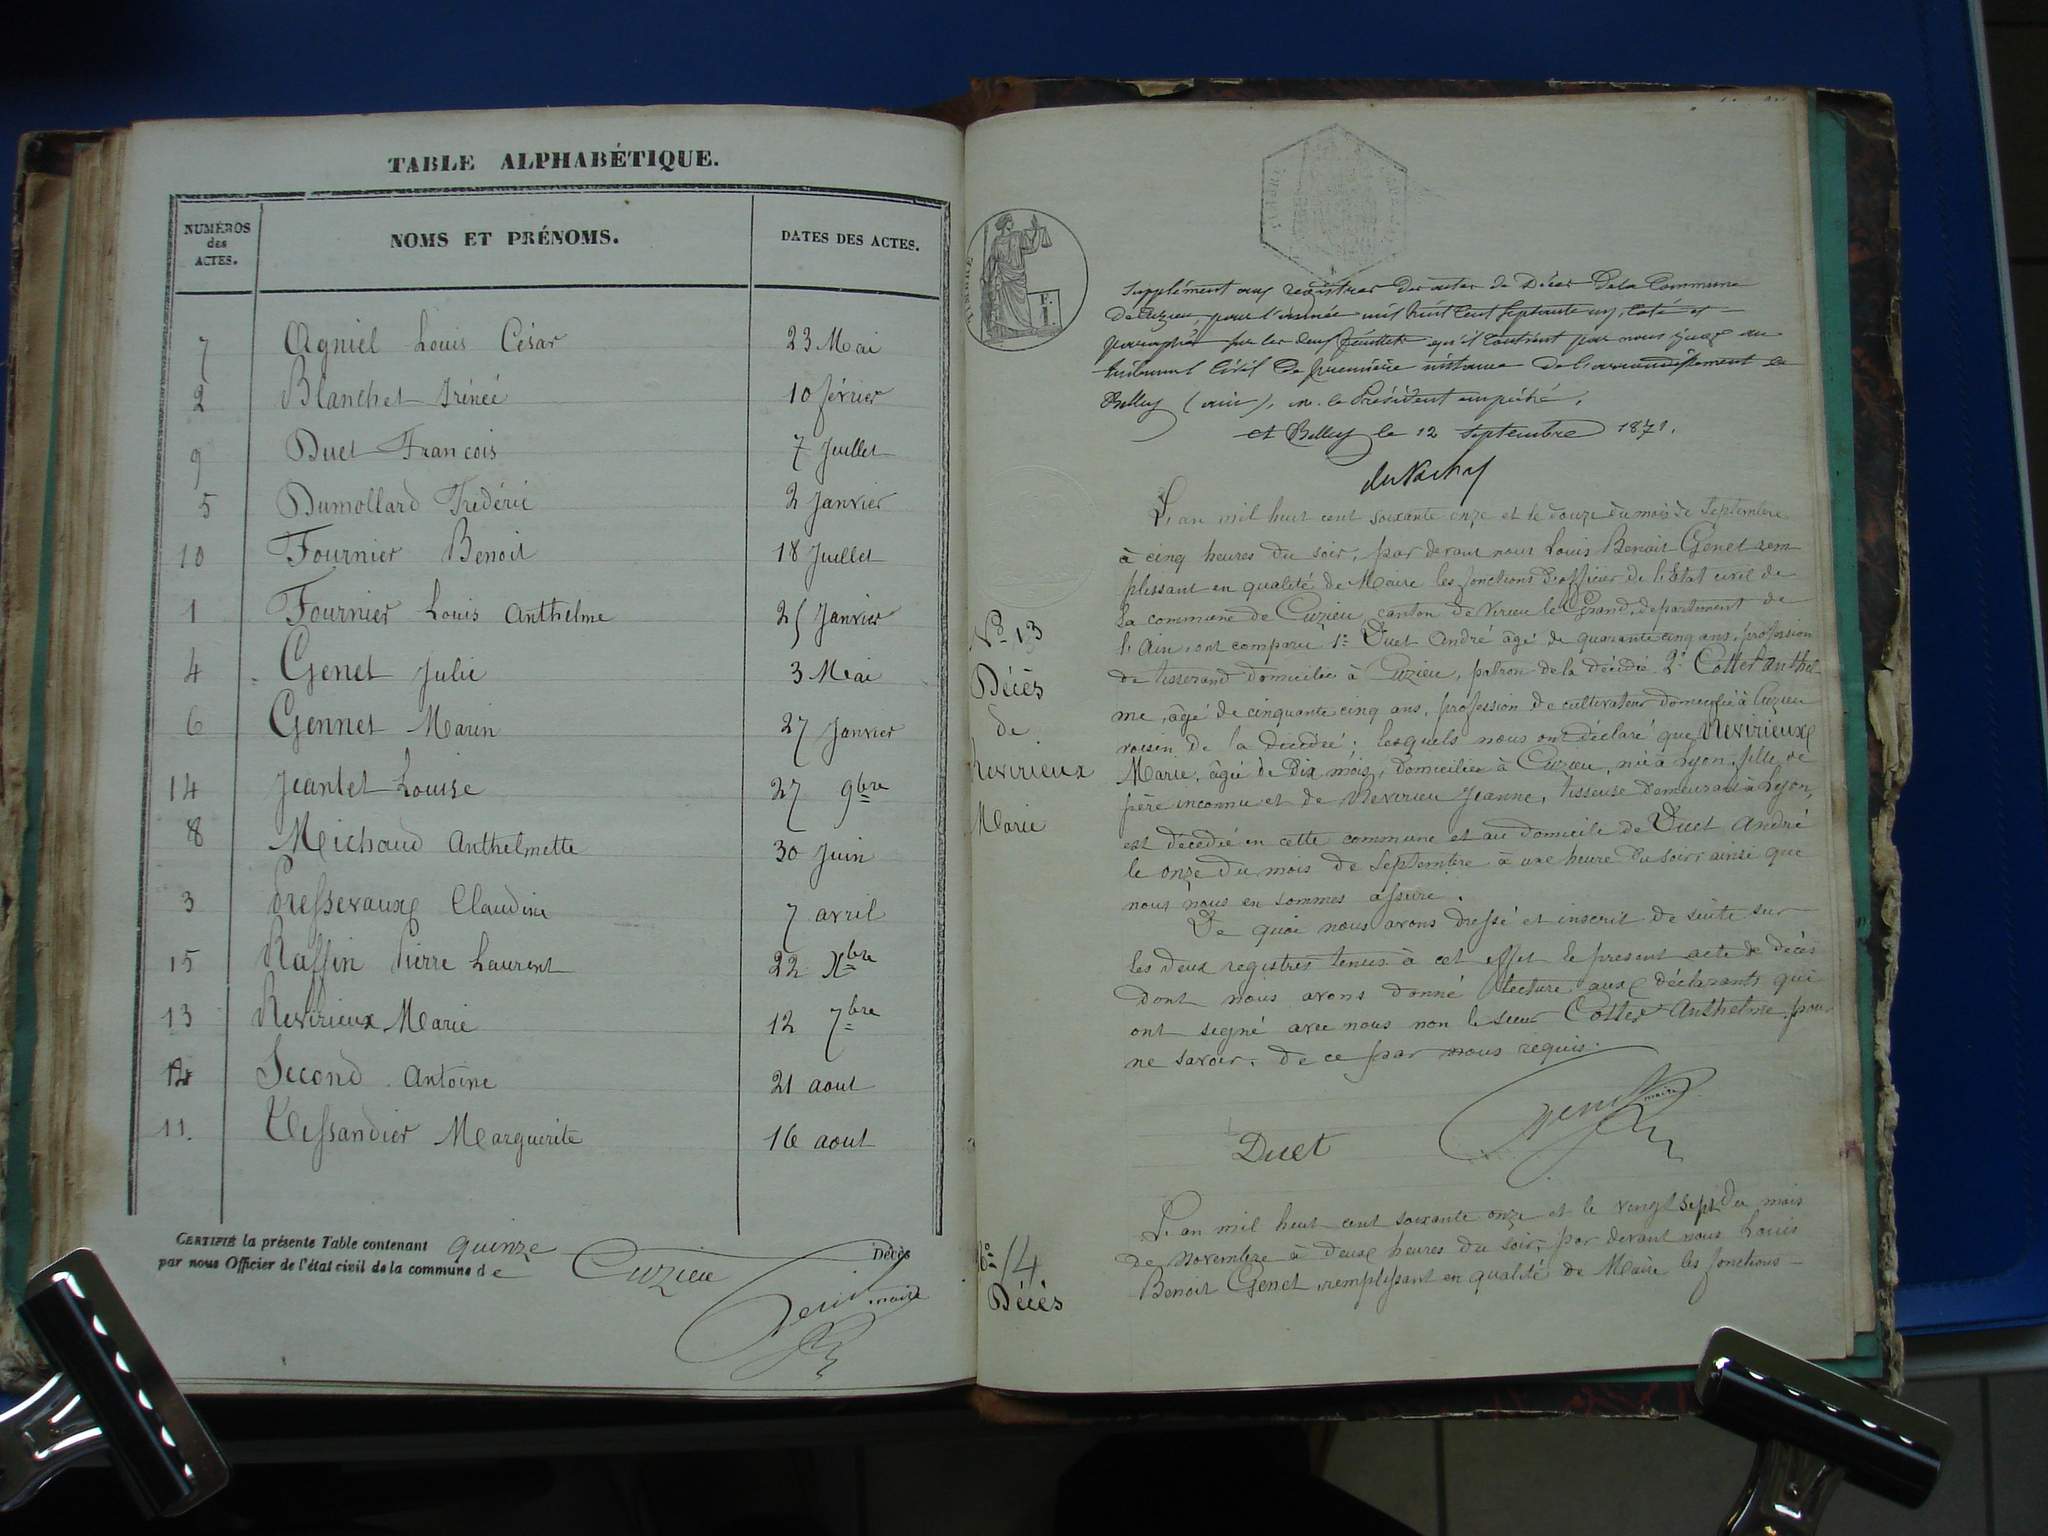 TABLE ALPHABÉTIQUE.
NUMÉROS des ACTES.
NOMS ET PRÉNOMS.
DATES DES ACTES.
7 Agniel Louis César 23 Mai
2 Blanchet Irénée 10 février
9 Duet François 7 Juillet
5 Dumollard Frédéric 2 Janvier
10 Fournier Benoit 18 Juillet
1 Fournier Louis Anthelme 25 Janvier
4 Genet Julie 3 Mai
6 Gennet Marin 27 Janvier
14 Jeantet Louise 27 9bre
8 Michaud Anthelmette 30 Juin
3 Pressevaux Claudine 7 avril
15 Raffin Pierre Laurent 22 Xbre
13 Revirieux Marie 12 7bre
12 Second Antoine 21 aout
11. Tessandier Marguerite 16 aout
CERTIFIÉ la présente Table contenant quinze Décès
par nous Officier de l'état civil de la commune de Cuzieu
Genet maire
TIMBRE
F.
1
Supplément aux registres des actes de Décès de la Commune
de Cuzieu, pour l'année mil huit cent septante un, coté et
paraphé sur les deux feuillets qu'il contient par nous juge au
tribunal Civil de première instance de l'arrondissement de
Belley (ain), M. le Président empêché.
et Belley le 12 Septembre 1871.
L'an mil huit cent soixante onze et le douze du mois de Septembre
à cinq heures du soir, par devant nous Louis Benoit Genet rem
plissant en qualité de Maire les fonctions d'officier de l'Etat civil de
la commune de Cuzieu canton de Virieu le Grand, departement de
l'Ain, ont comparu 1º Duet André âgé de quarante cinq ans, profession
de tisserand domicilié à Cuzieu, patron de la décédée 2º Cottet Anthel
me, âgé de cinquante cinq ans, profession de cultivateur domicilié à Cuzieu
voisin de la décédée; lesquels nous ont déclaré que Revirieux
Marie, âgée de Dix mois, domiciliée à Cuzieu, née à Lyon, fille de
père inconnu et de Revirieu Jeanne, tisseuse demeurant à Lyon,
est décédée en cette commune et au domicile de Duet André
le onze du mois de Septembre à une heure du soir, ainsi que
nous nous en sommes assuré.
De quoi nous avons dressé et inscrit de suite sur
les deux registres tenus à cet effet le present acte de décès
dont nous avons donné lecture aux déclarants qui
ont signé avec nous non le sieur Cottet Anthelme, pour
ne savoir, de ce par nous requis.
Nº 13
Décès
de
Revirieux
Marie
Duet
Genet maire
Nº 14
Décès
L'an mil huit cent soixante onze et le vingt sept du mois
de Novembre à deux heures du soir, par devant nous Louis
Benoit Genet remplissant en qualité de Maire les fonctions